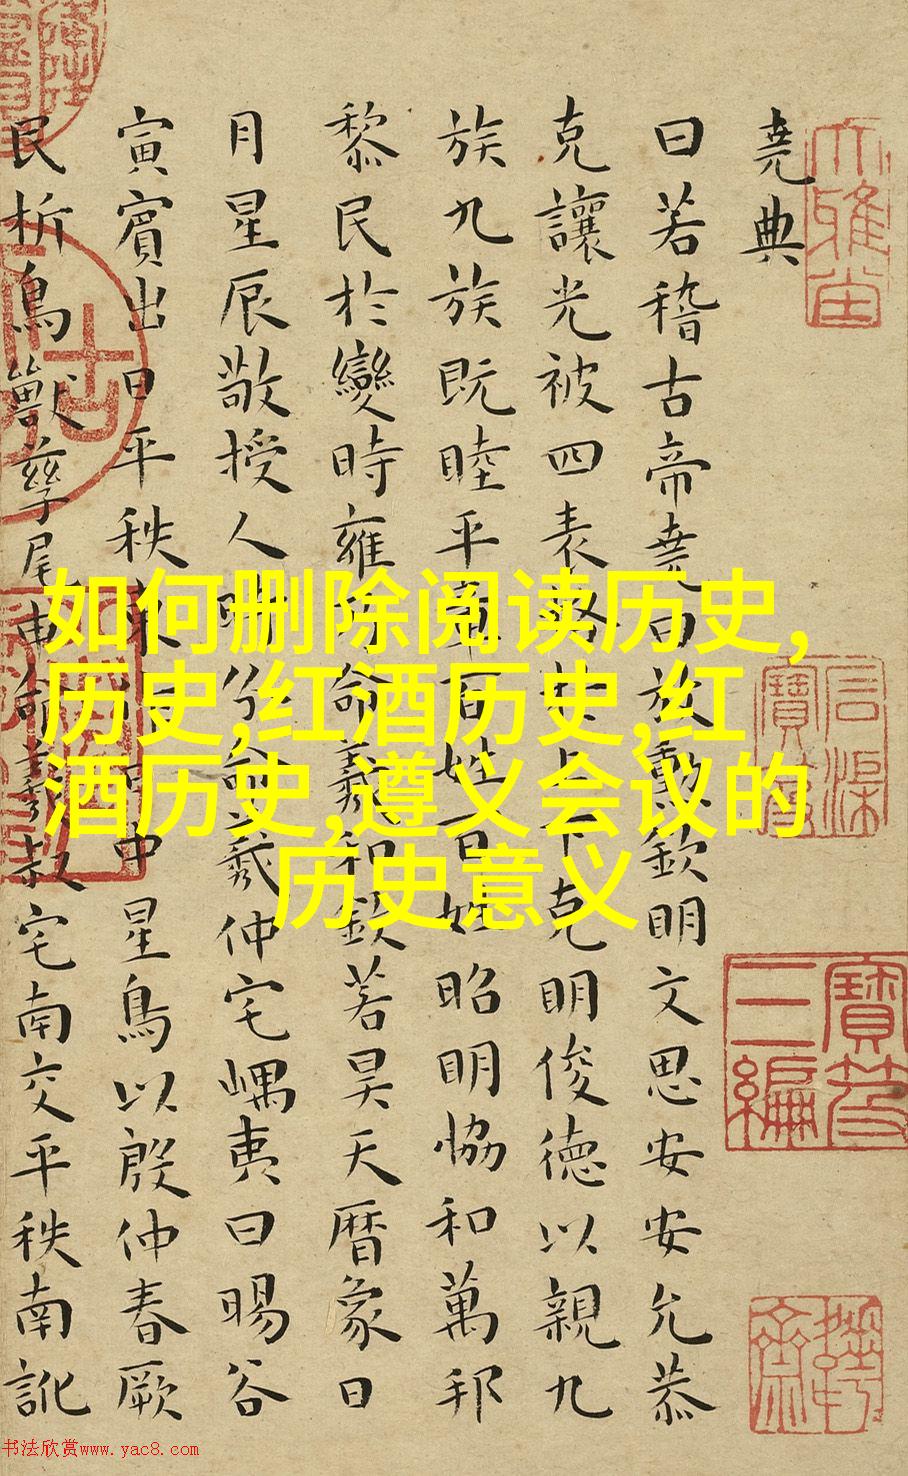 堯典
曰若稽古帝堯曰放勳欽明文思安安允恭
克讓光被四表格於上下克明俊德以親九
族九族既睦平章百姓百姓昭明恊和萬邦
黎民於變時雍乃命羲和欽若昊天暦象日
月星辰敬授人時分命羲仲宅嵎夷曰暘谷
寅賓出日平秩東作日中星鳥以殷仲春厥
民析鳥獸孳尾申命羲叔宅南交平秩南訛
如何删除阅读历史,
历史,红酒历史,红
酒历史,遵义会议的
历史意义
寶笈
三編
书法欣赏www.yac8.com